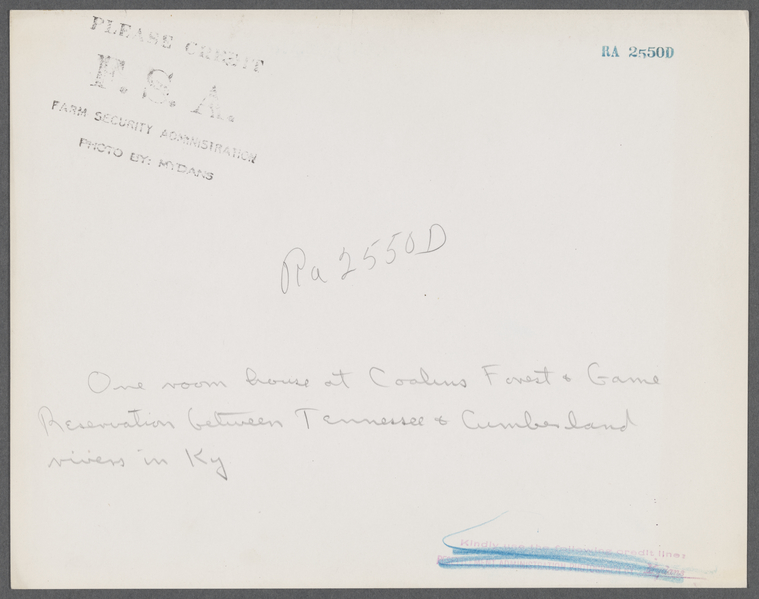 PLEASE CREDIT
F.S.A.
FARM SECURITY ADMINISTRATION
PHOTO BY: MYDANS
RA 2550D
Ra 2550D
One room house at Coalins Forest & Game
Reservation between Tennessee & Cumberland
rivers in Ky
Kindly use the following credit line: